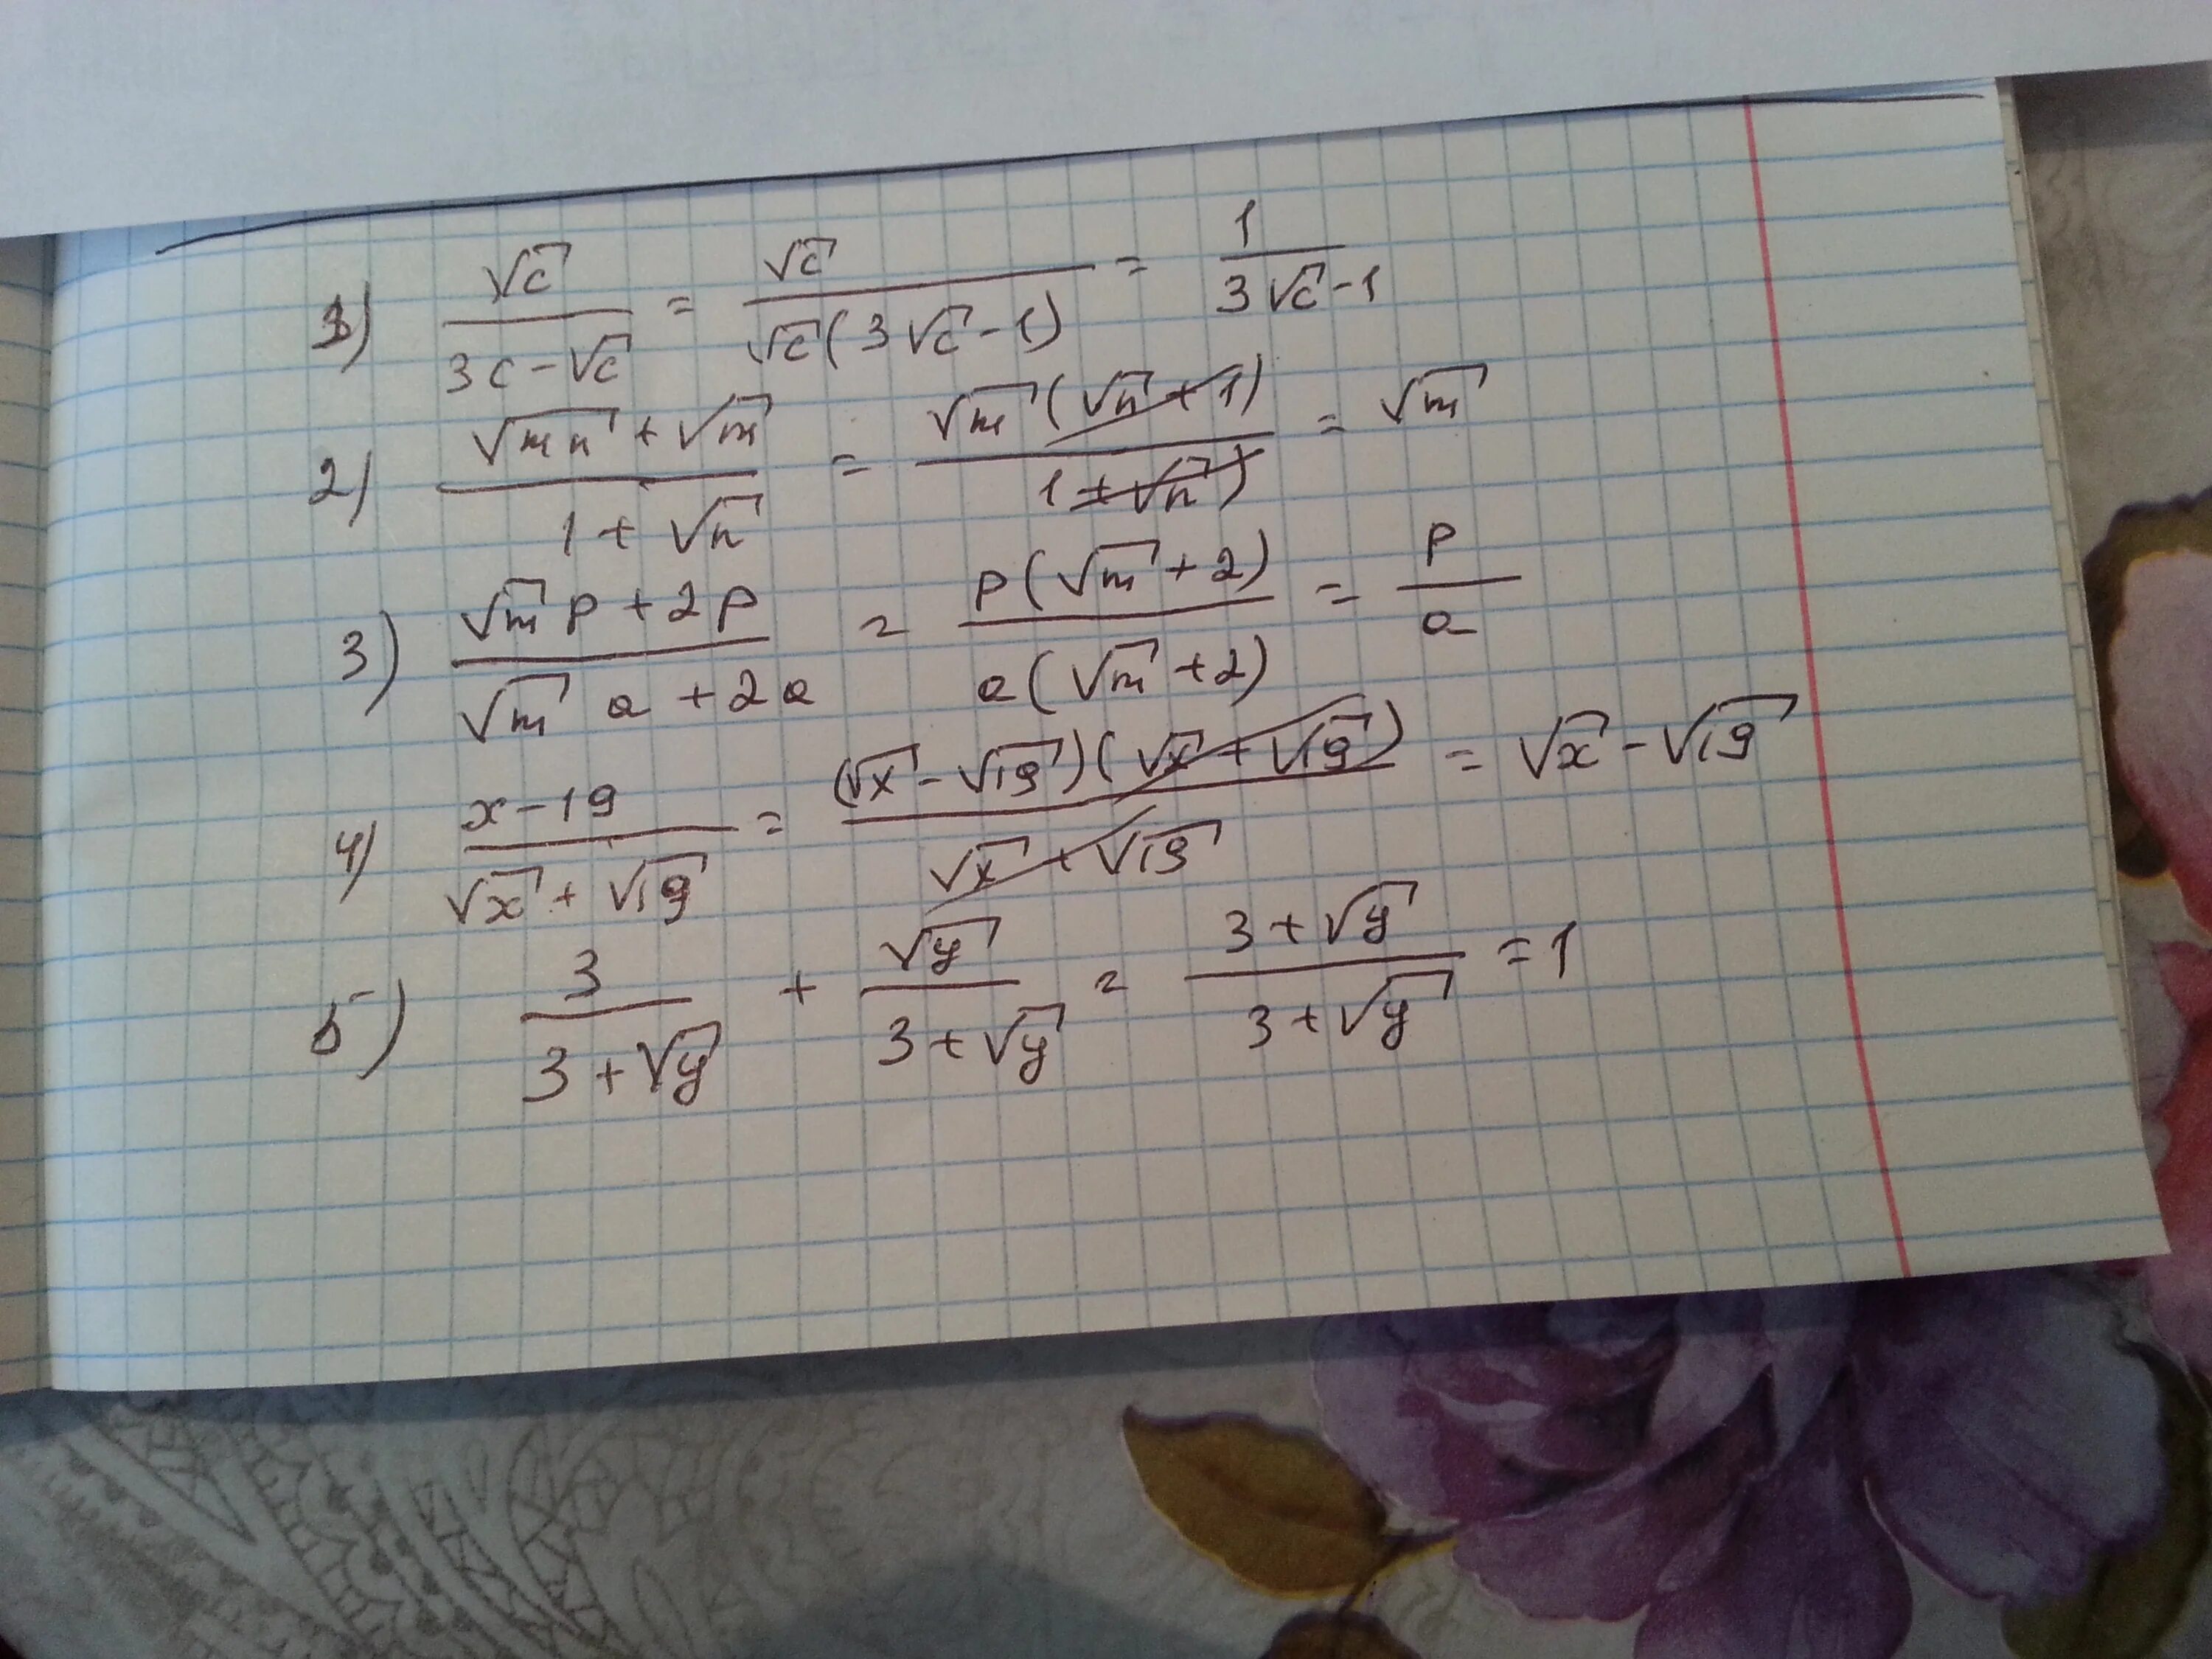 1) √c / (3c - √c) = √c / (√c(3√c - 1)) = 1 / (3√c - 1)
2) (√mn + √m) / (1 + √n) = √m(√n + 1) / (1 + √n) = √m
3) (√m p + 2p) / (√m a + 2a) = p(√m + 2) / a(√m + 2) = p / a
4) (x - 19) / (√x + √19) = (√x - √19)(√x + √19) / (√x + √19) = √x - √19
5) 3 / (3 + √y) + √y / (3 + √y) = (3 + √y) / (3 + √y) = 1